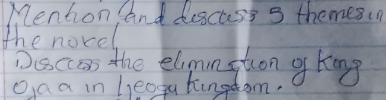 Mention and discuss 5 themes in
the novel
Discuss the eliminstion of King
Ojaa in Ijeogu Kingdom.